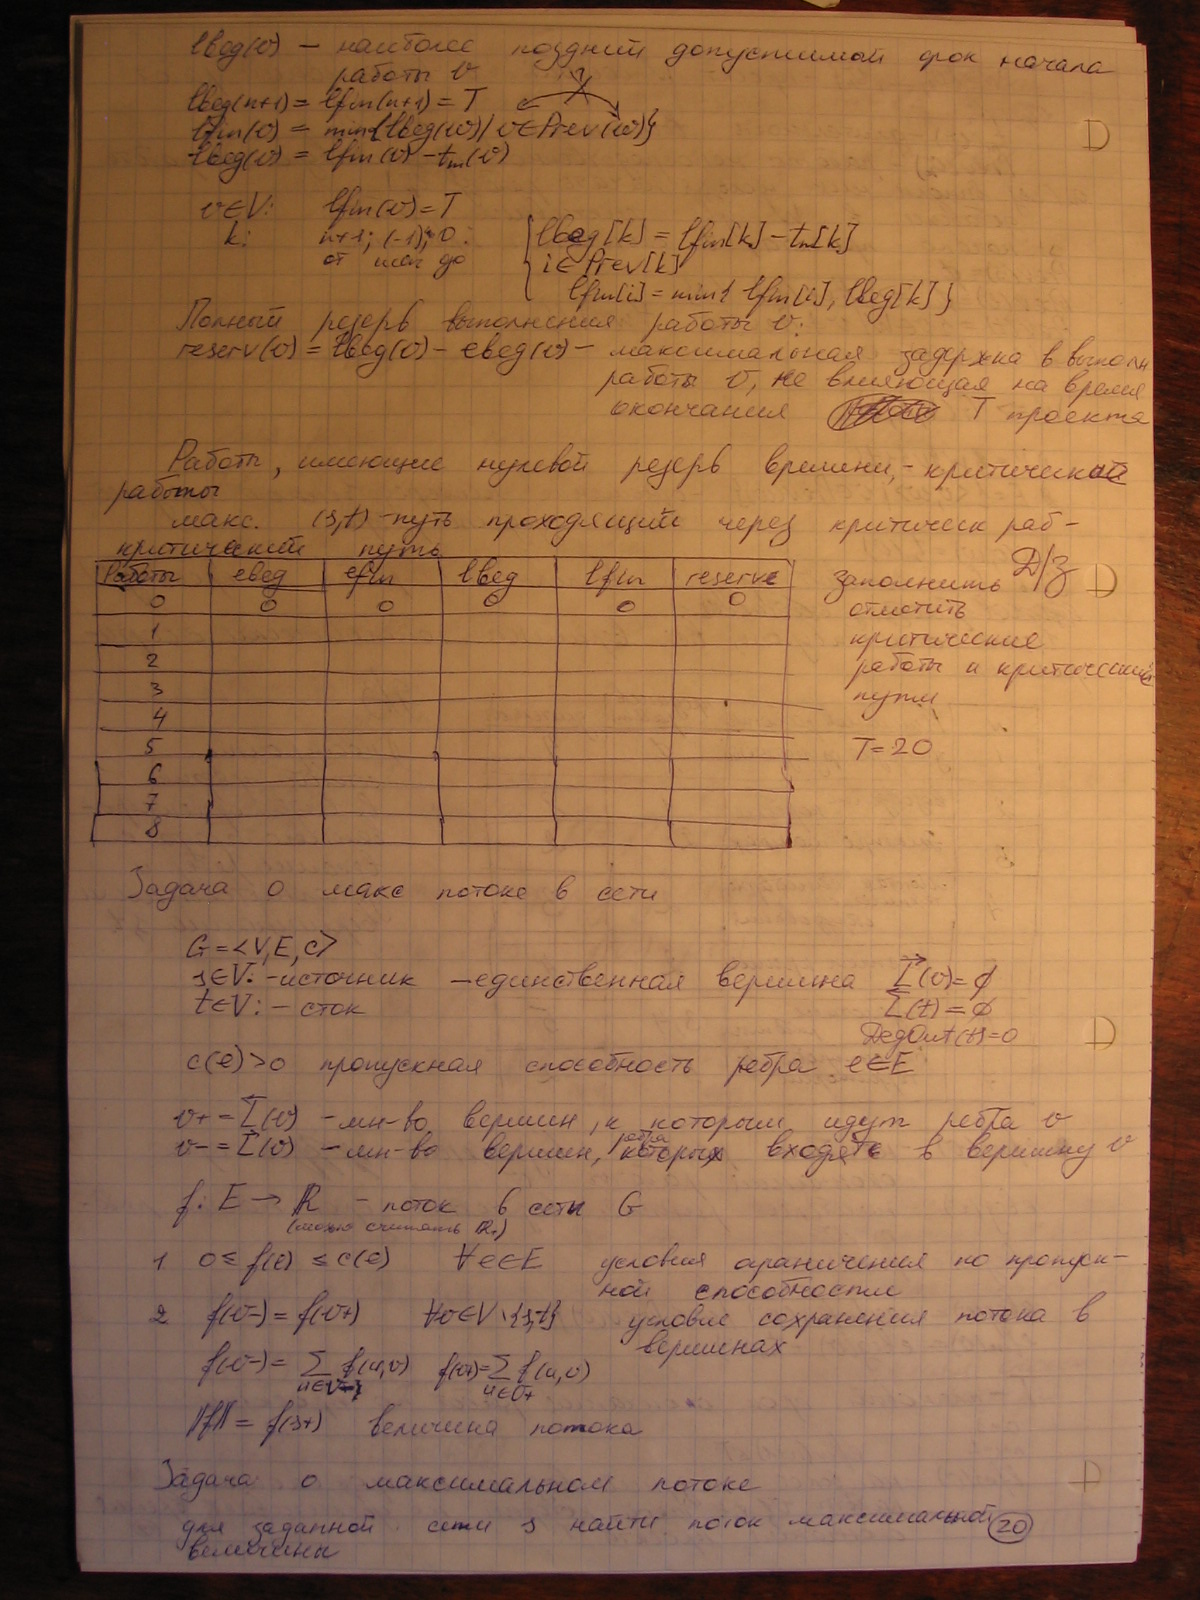 lbeg(v) – наиболее поздний допустимой срок начала
работы v
lbeg(n+1) = lfin(n+1) = T
lfin(v) = min{lbeg(w) | v∈Prev(w)}
lbeg(v) = lfin(v) – tm(v)
v∈V: lfin(v) = T
k: n+1; (-1); 0 :
от шаг до
lbeg[k] = lfin[k] – tm[k]
i∈Prev[k]
lfin[i] = min{ lfin[i], lbeg[k] }
Полный резерв выполнения работы v:
reserv(v) = lbeg(v) – ebeg(v) – максимальная задержка в выполн
работы v, не влияющая на время
окончания T проекта
Работы, имеющие нулевой резерв времени, – критической
работы
макс. (s,t) – путь проходящий через критическ раб –
критический путь
Работы ebeg efin lbeg lfin reserve
0 0 0 0 0 0
1
2
3
4
5
6
7
8
заполнить Д/з
отметить
критические
работы и критический
пути
T = 20
D
D
Задача о макс потоке в сети
G = <V, E, c>
s∈V: – источник – единственная вершина Γ(v) = ∅
t∈V: – сток Γ(t) = ∅
DegOut(t) = 0
D
c(e) > 0 пропускная способность ребра e∈E
v+ = Γ(v) – мн-во вершин, к которым идут ребра v
v- = Γ(v) – мн-во вершин, ребра которых входять в вершину v
f: E → ℝ – поток в сети G
(можно считать ℝ+)
1 0 ≤ f(e) ≤ c(e) ∀e∈E условия ограничения по пропуск-
ной способности
2 f(v-) = f(v+) ∀v∈V\{s,t} условие сохранения потока в
вершинах
f(v-) = Σ f(u,v) f(v+) = Σ f(u,v)
u∈v- u∈v+
‖f‖ = f(s+) величина потока
Задача о максимальном потоке
D
для заданной сети s найти поток максимальной
величины
20